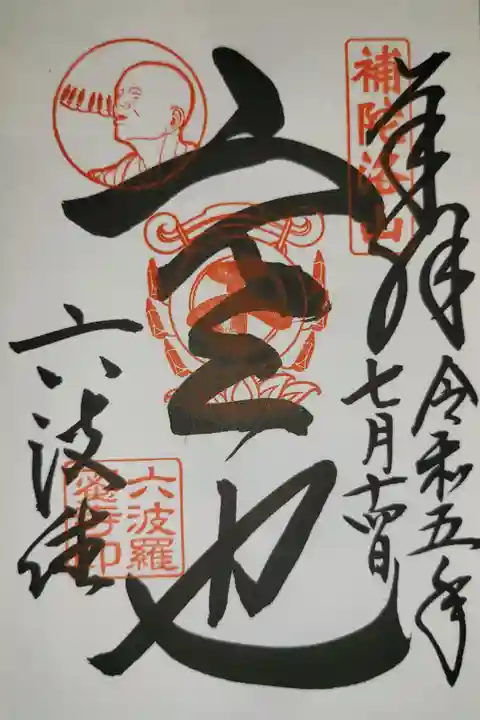 奉拝
令和五年
七月十四日
補陀洛山
空也
六波羅
蜜寺印
六波住